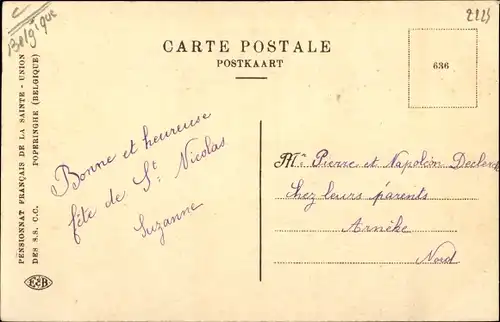 c
Belgique
2125
CARTE POSTALE
POSTKAART
636
PENSIONNAT FRANÇAIS DE LA SAINTE - UNION
DES S.S. C.C. POPERINGHE (BELGIQUE)
Bonne et heureuse
fête de St. Nicolas
Suzanne
Ms. Pierre et Napoléon Declerck
chez leurs parents
Arnèke
Nord